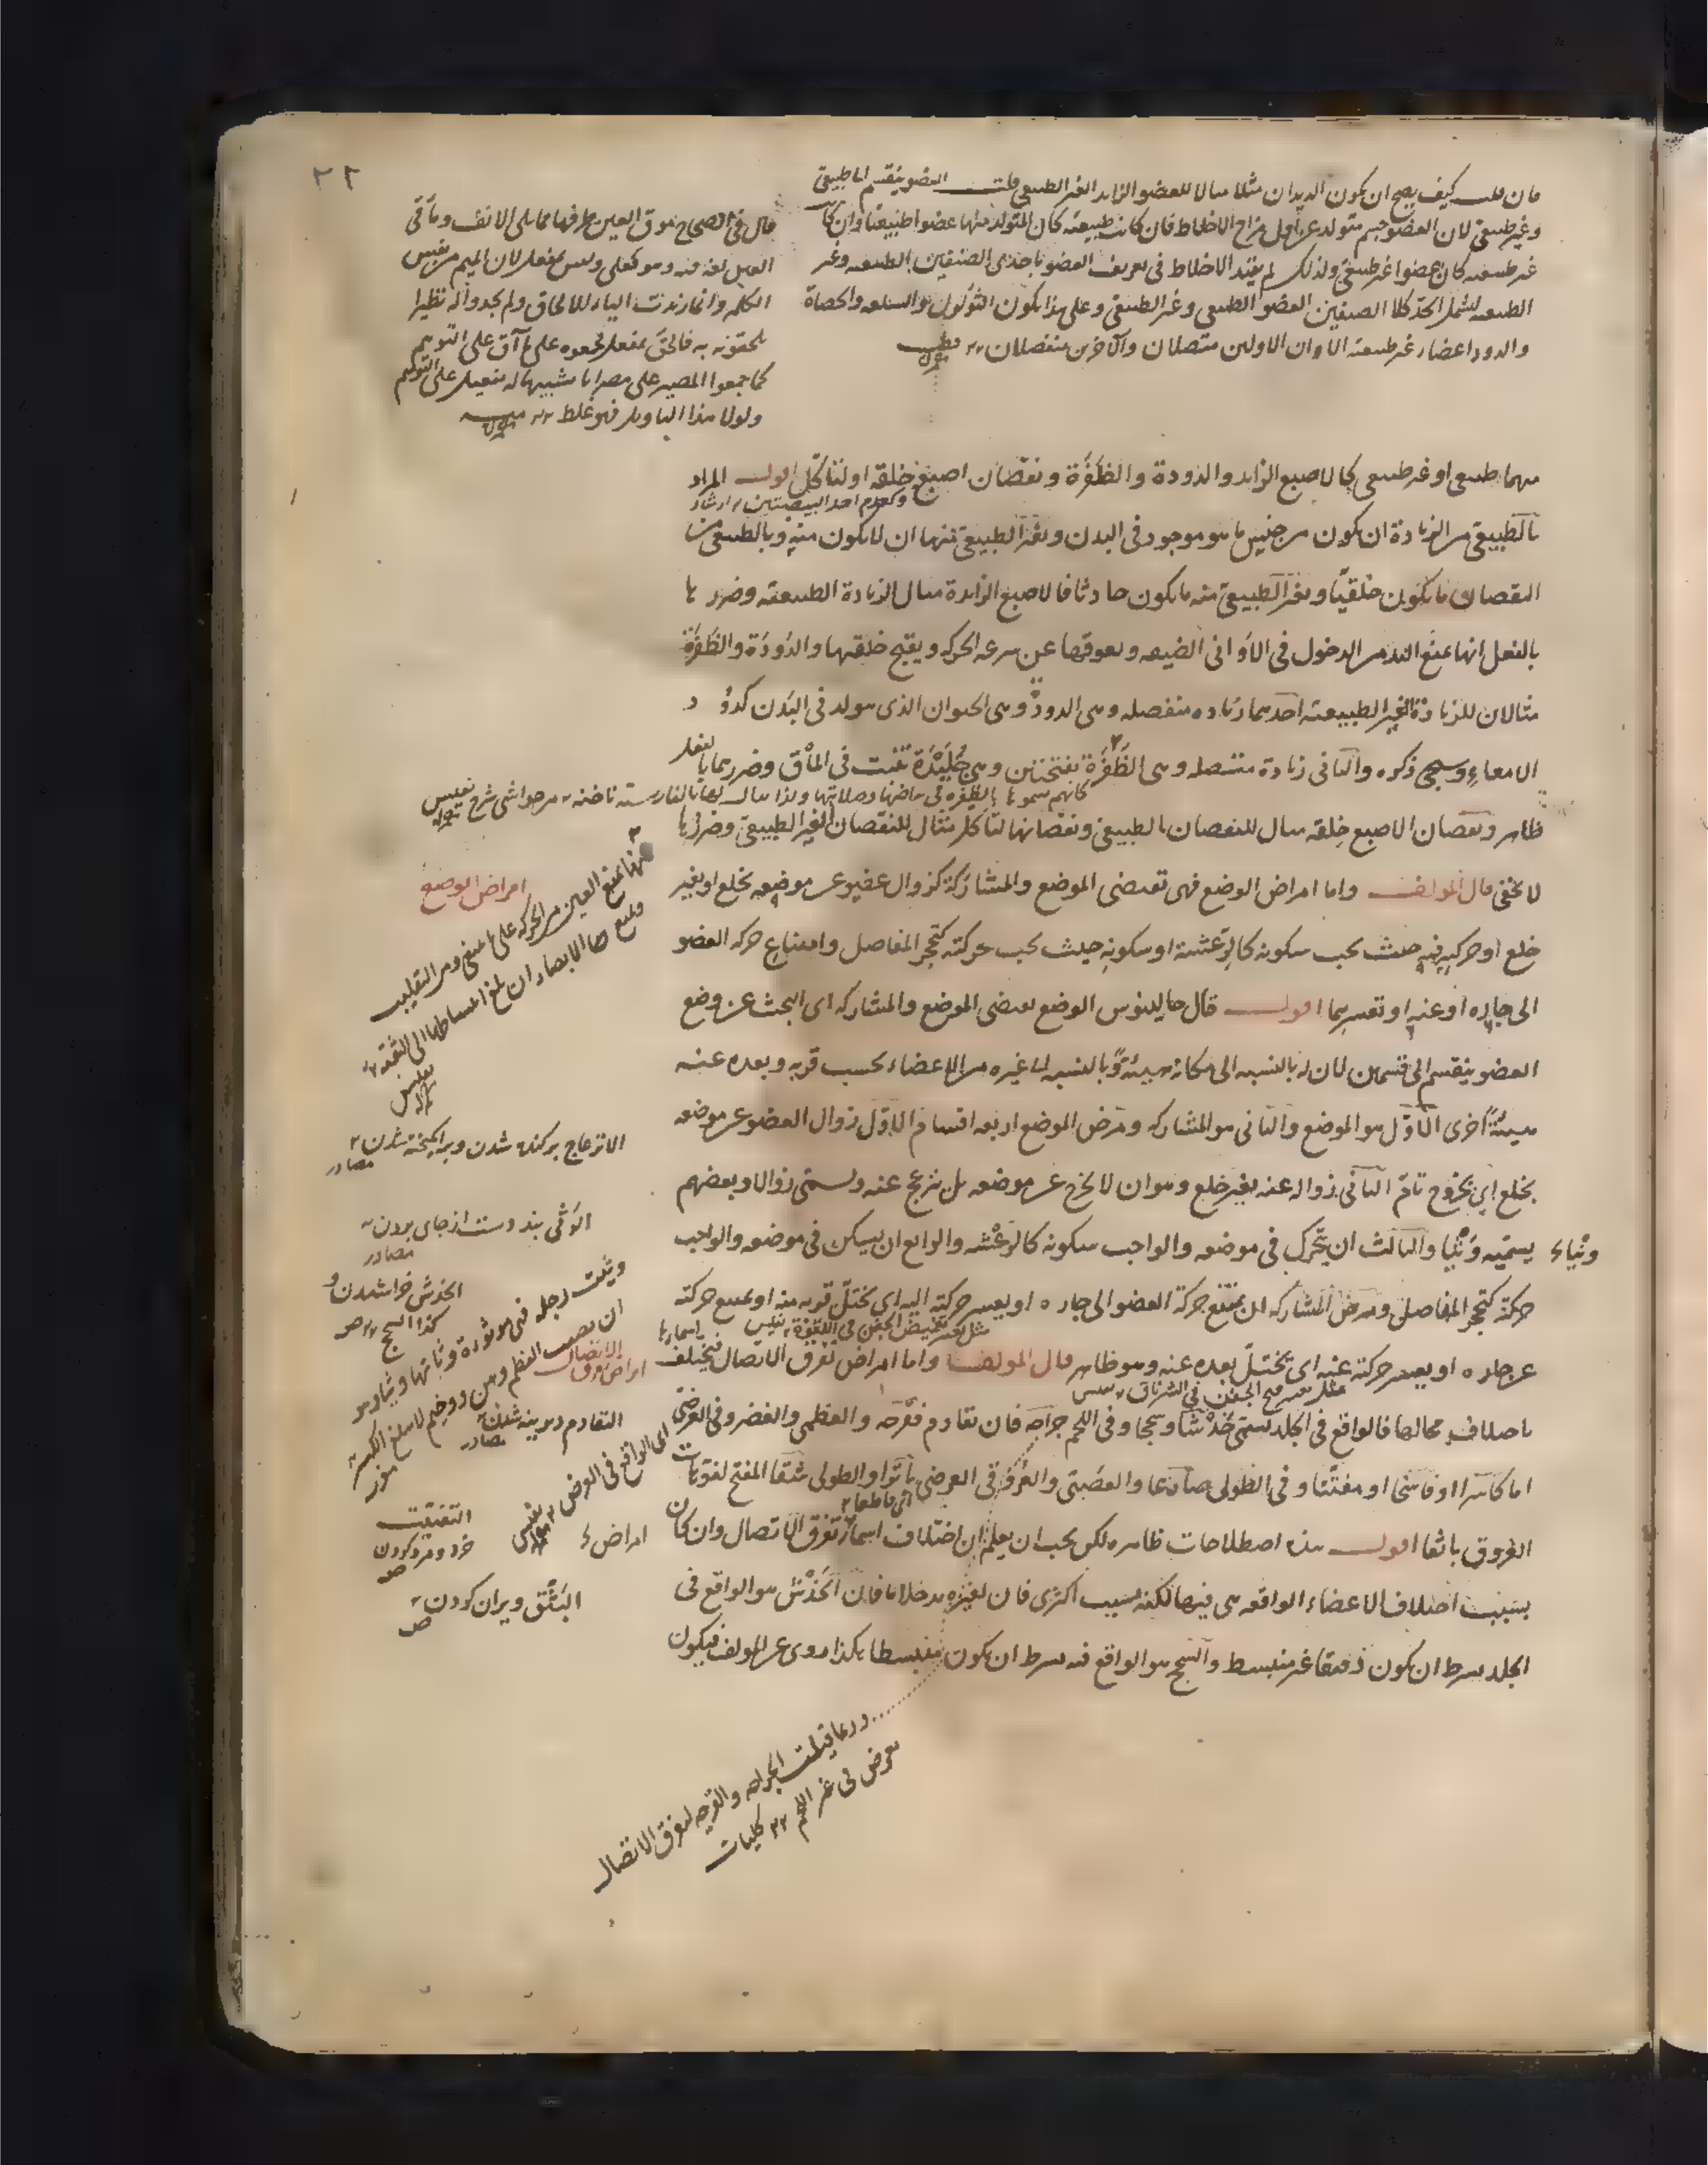 ٢٢
فان قلت كيف يصح ان يكون الديدان مثلا مثالا للعضو الزايد الغير الطبيعى قلت العضو ينقسم الى طبيعى
وغير طبيعى لان العضو جسم متولد عن اول مزاج الاخلاط فان كانت طبيعته كان المتولد منها عضوا طبيعيا وان كانت
غير طبيعيه كان عضوا غير طبيعى ولذلك لم يقيد الاخلاط فى تعريف العضو باحدى الصنفين الطبيعيه وغير
الطبيعيه لتشمل الحد كلا الصنفين العضو الطبيعى وغير الطبيعى وعلى هذا يكون الثؤلول والسلعه والحصاة
والدود اعضاء غير طبيعيه الا ان الاولين متصلان والآخرين منفصلان
قال فى الصحاح موق العين طرفها مما يلى الانف ومأقى
العين لغه فيه وهو فعلى وليس بمفعل لان الميم من نفس
الكلمه وانما زيدت الياء للالحاق ولم يجدوا له نظيرا
يلحقونه به فالحق بمفعل فجمعوه على مآق على التوهم
كما جمعوا المصير على مصران تشبيها له بفعيل على التوهم
ولولا هذا التاويل فهو غلط
مهما طبيعى او غير طبيعى كالاصبع الزايد والدودة والظفرة ونقصان اصبع خلقة او لتأكل اقول المراد
وكعدم احد البيضتين
بالطبيعى من الزيادة ان يكون من جنس ما هو موجود فى البدن وبغير الطبيعى منها ان لا يكون منه وبالطبيعى من
النقصان ما يكون خلقيا وبغير الطبيعى منه ما يكون حادثا فالاصبع الزايدة مثال الزيادة الطبيعيه وضررها
بالفعل انها تمنع اليد من الدخول فى الاوانى الضيقه ويعوقها عن سرعه الحركه ويقبح خلقها والدودة والظفرة
مثالان للزيادة الغير الطبيعيه احدهما زياده منفصله وهى الدود وهى الحيوان الذى يتولد فى البدن كدود
الامعاء وسيجئ ذكره والثانى زيادة متصله وهى الظفرة بفتحتين وهى جليدة تنبت فى المأق وضررهما بالفعل
كانهم سموها بالظفره فى بياضها وصلابتها ولذا يقال لها بالفارسيه ناخنه من حواشى شرح نفيس
ظاهر ونقصان الاصبع خلقه مثال للنقصان الطبيعى ونقصانها لتاكل مثال للنقصان الغير الطبيعى وضررها
لا يخفى قال المولف واما امراض الوضع فهى تقتضى الموضع والمشاركة كزوال عضو عن موضعه بخلع او بغير
امراض الوضع
خلع او حركته فيه حيث يجب سكونه كالرعشة او سكونه حيث يجب حركته كتحجر المفاصل وامتناع حركه العضو
الى جاره او عنه او تعسرهما اقول قال جالينوس الوضع يقتضى الموضع والمشاركه اى البحث عن وضع
العضو ينقسم الى قسمين لان له بالنسبه الى مكانه هيئة وبالنسبه الى غيره من الاعضاء بحسب قربه وبعده عنه
هيئة اخرى الاول هو الموضع والثانى هو المشاركه ومرض الموضع اربعه اقسام الاول زوال العضو عن موضعه
بخلع اى بخروج تام الثانى زواله عنه بغير خلع وهو ان لا يخرج عن موضعه بل ينزعج عنه ويسمى زوالا وبعضهم
يسميه وثيا والثالث ان يتحرك فى موضعه والواجب سكونه كالرعشه والرابع ان يسكن فى موضعه والواجب
وثياء
حركته كتحجر المفاصل ومرض المشاركه ان يمتنع حركة العضو الى جاره او يعسر حركته اليه اى يختل قربه منه او يمتنع حركته
مثل تعسر تغميض الجفن فى اللقوة نفيس
عن جاره او يعسر حركته عنه اى يختل بعده عنه وهو ظاهر قال المولف واما امراض تفرق الاتصال فيختلف اسمائها
باختلاف محالها فالواقع فى الجلد يسمى خدشا وسحجا وفى اللحم جراحه فان تقادم فقرحه والعظمى والغضروفى العرضى
اما كاسرا او فاسخا او مفتتا وفى الطولى صادعا والعصبى والعرقى فى العرضى باترا والطولى شقا المفتح لفوهات
العروق باثقا اقول هذه اصطلاحات ظاهره لكن يجب ان يعلم ان اختلاف اسماء تفرق الاتصال وان كان
بسبب اختلاف الاعضاء الواقعه هى فيها لكنه بسبب اكثرى فان لغيره مدخلا ما فان الخدش هو الواقع فى
الجلد بشرط ان يكون دقيقا غير منبسط والسحج هو الواقع فيه بشرط ان يكون منبسطا هكذا روى عن المولف فيكون
فانها تمنع العين من الحركه على ما ينبغى ومن التقليب
الانزعاج بركنده شدن وبرانگيخته شدن
مصادر
الوثى بند دست از جاى بردن
مصادر
الخدش خراشيدن و
كذا السحج
امراض تفرق الاتصال
التقادم ديرينه شدن
مصادر
اى الواقع فى العرض
التفتيت
خرد ومرد كردن
البثق ويران كردن
وربما قيلت الجراحه والقرحه لتفرق الاتصال
يعرض فى غير اللحم كليات